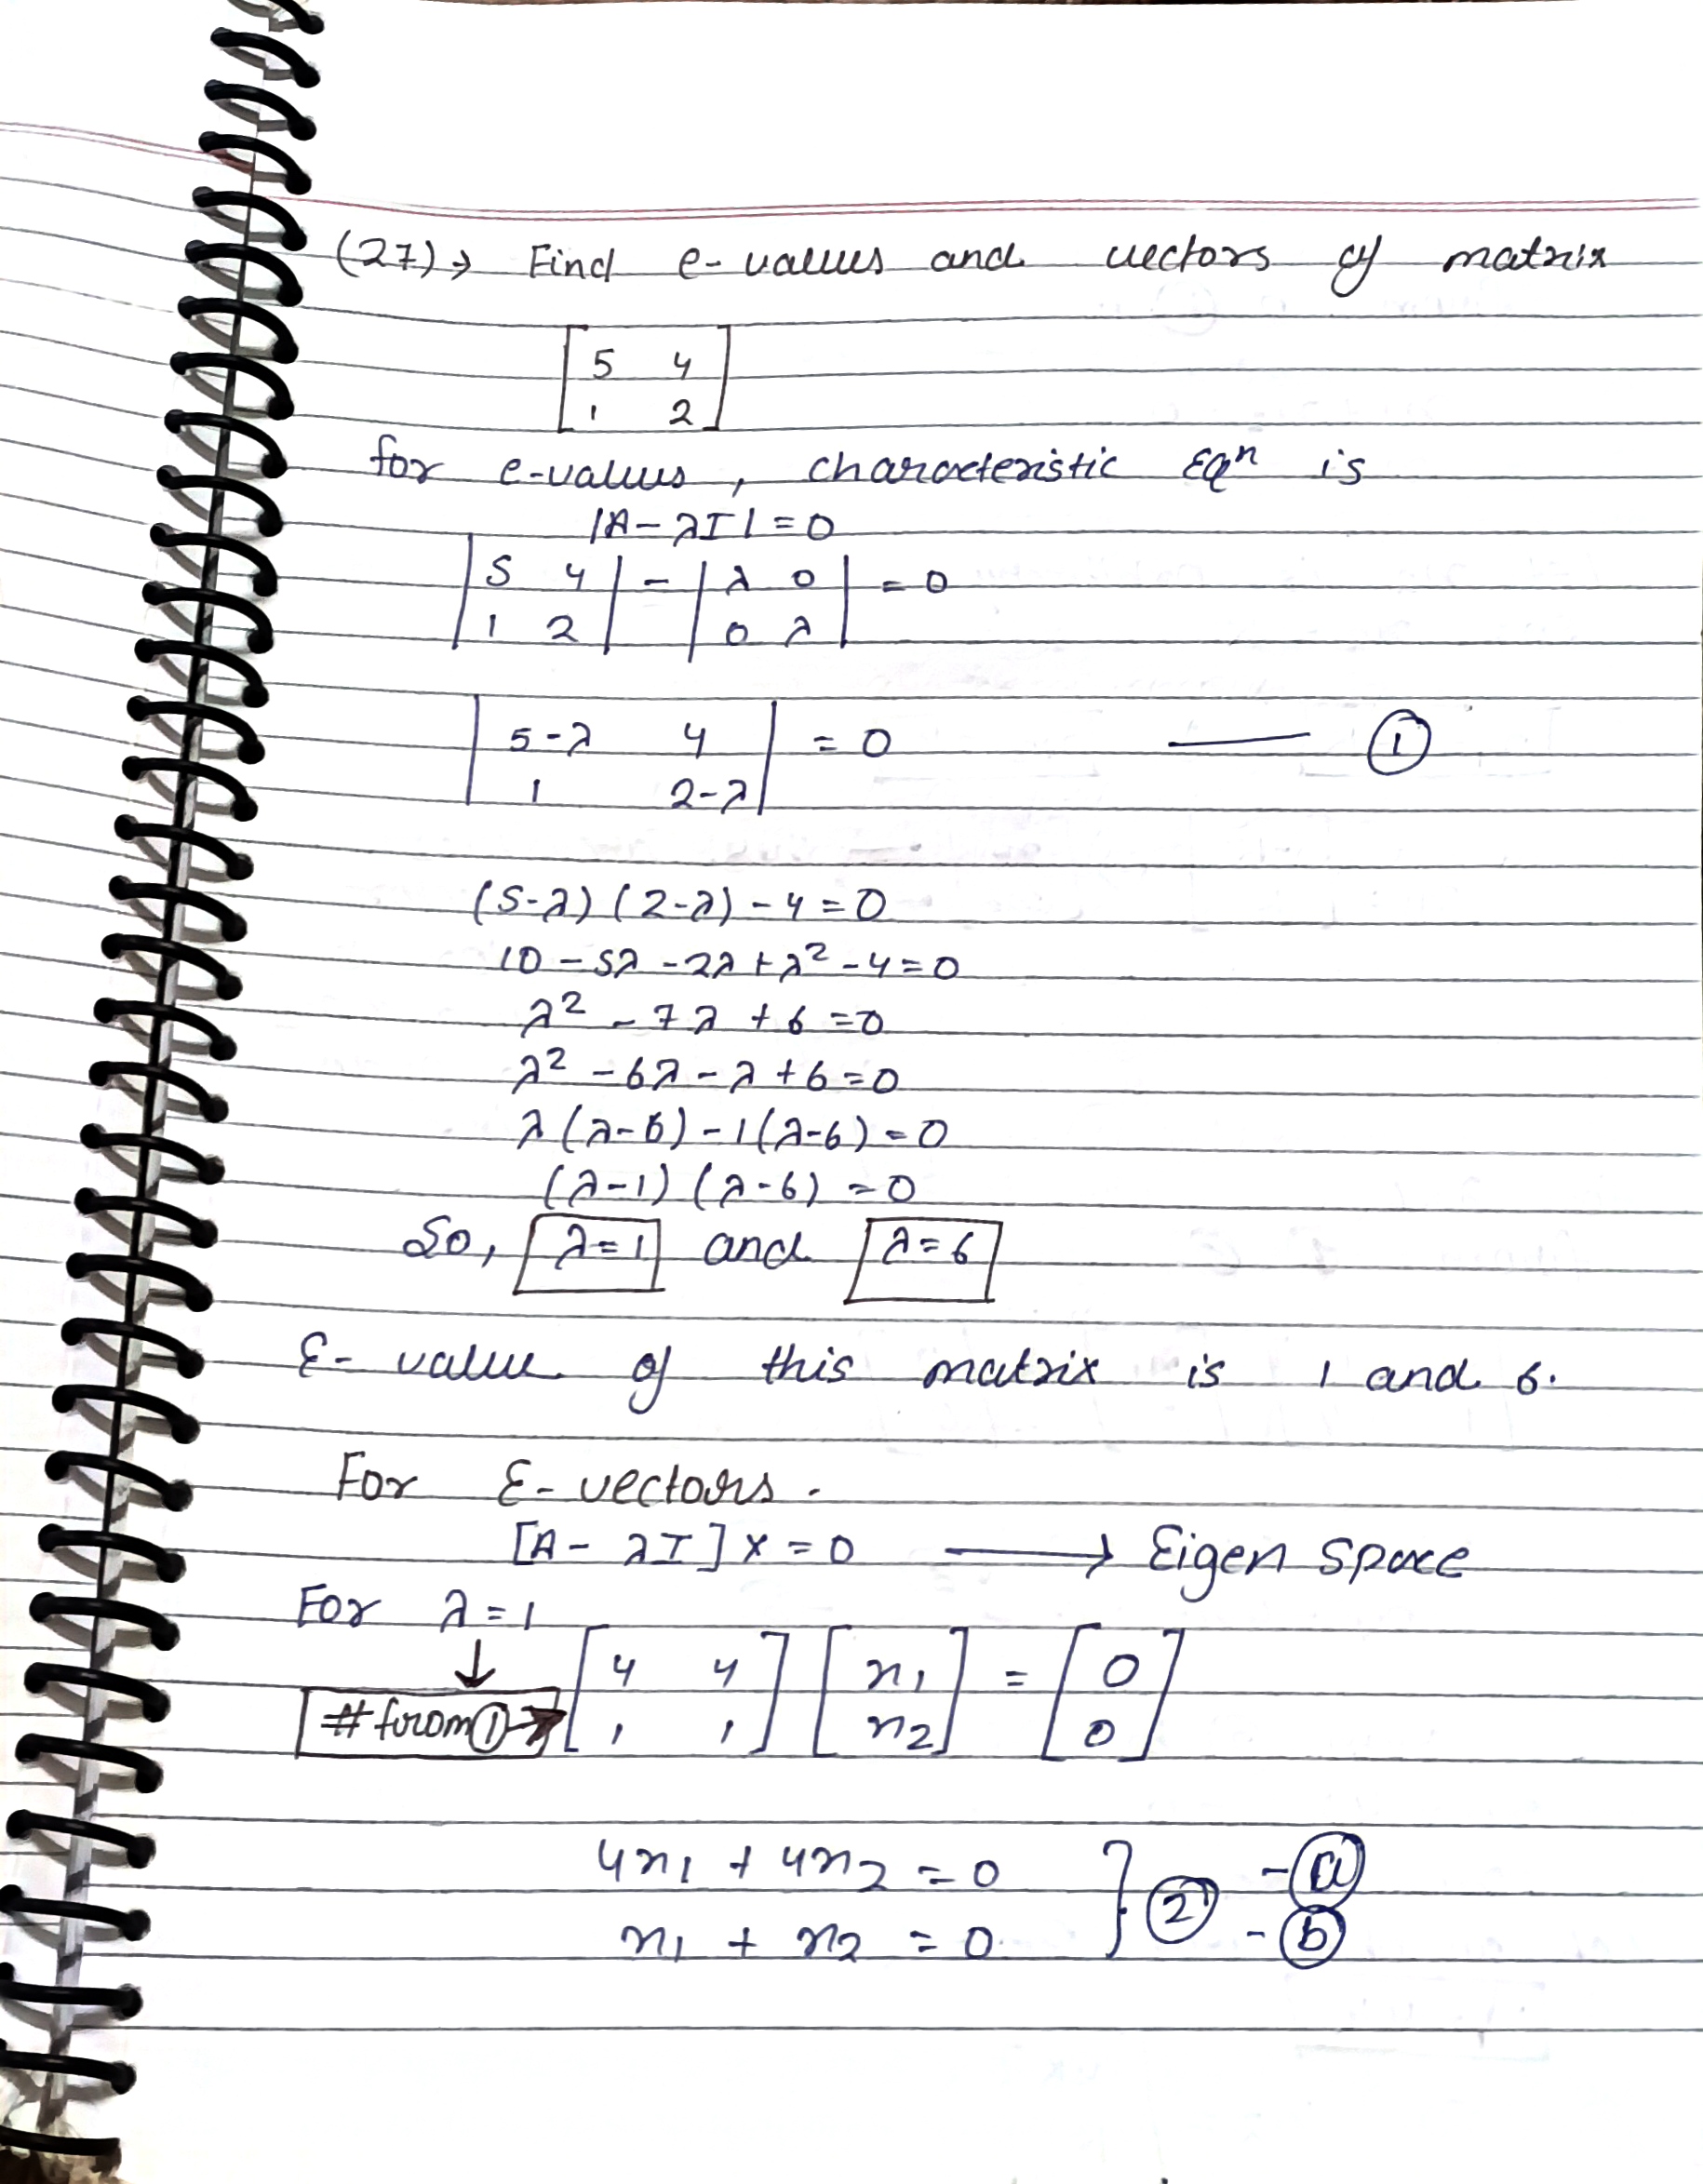 (27)→ Find e-values and vectors of matrix
[5 4
1 2]
for e-values, characteristic Eqⁿ is
|A-λI|=0
|5 4| - |λ 0| = 0
|1 2| |0 λ|
|5-λ 4| = 0 — ①
|1 2-λ|
(5-λ)(2-λ)-4=0
10-5λ-2λ+λ²-4=0
λ²-7λ+6=0
λ²-6λ-λ+6=0
λ(λ-6)-1(λ-6)=0
(λ-1)(λ-6)=0
So, λ=1 and λ=6
E-value of this matrix is 1 and 6.
For E-vectors.
[A-λI]X=0 → Eigen Space
For λ=1
↓ [4 4] [x1] = [0]
#from①→ [1 1] [x2] [0]
4x1 + 4x2 = 0 } ② -ⓐ
x1 + x2 = 0 -ⓑ